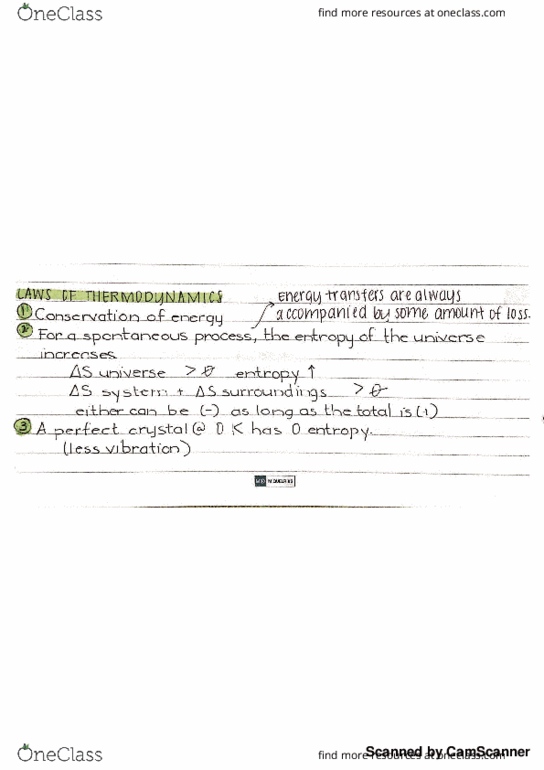 OneClass
find more resources at oneclass.com
LAWS OF THERMODYNAMICS
energy transfers are always
① Conservation of energy
accompanied by some amount of loss.
② For a spontaneous process, the entropy of the universe
increases
ΔS universe > 0 entropy ↑
ΔS system + ΔS surroundings > 0
either can be (-) as long as the total is (+)
③ A perfect crystal @ 0 K has 0 entropy.
(less vibration)
OneClass
find more resources at oneclass.com
Scanned by CamScanner